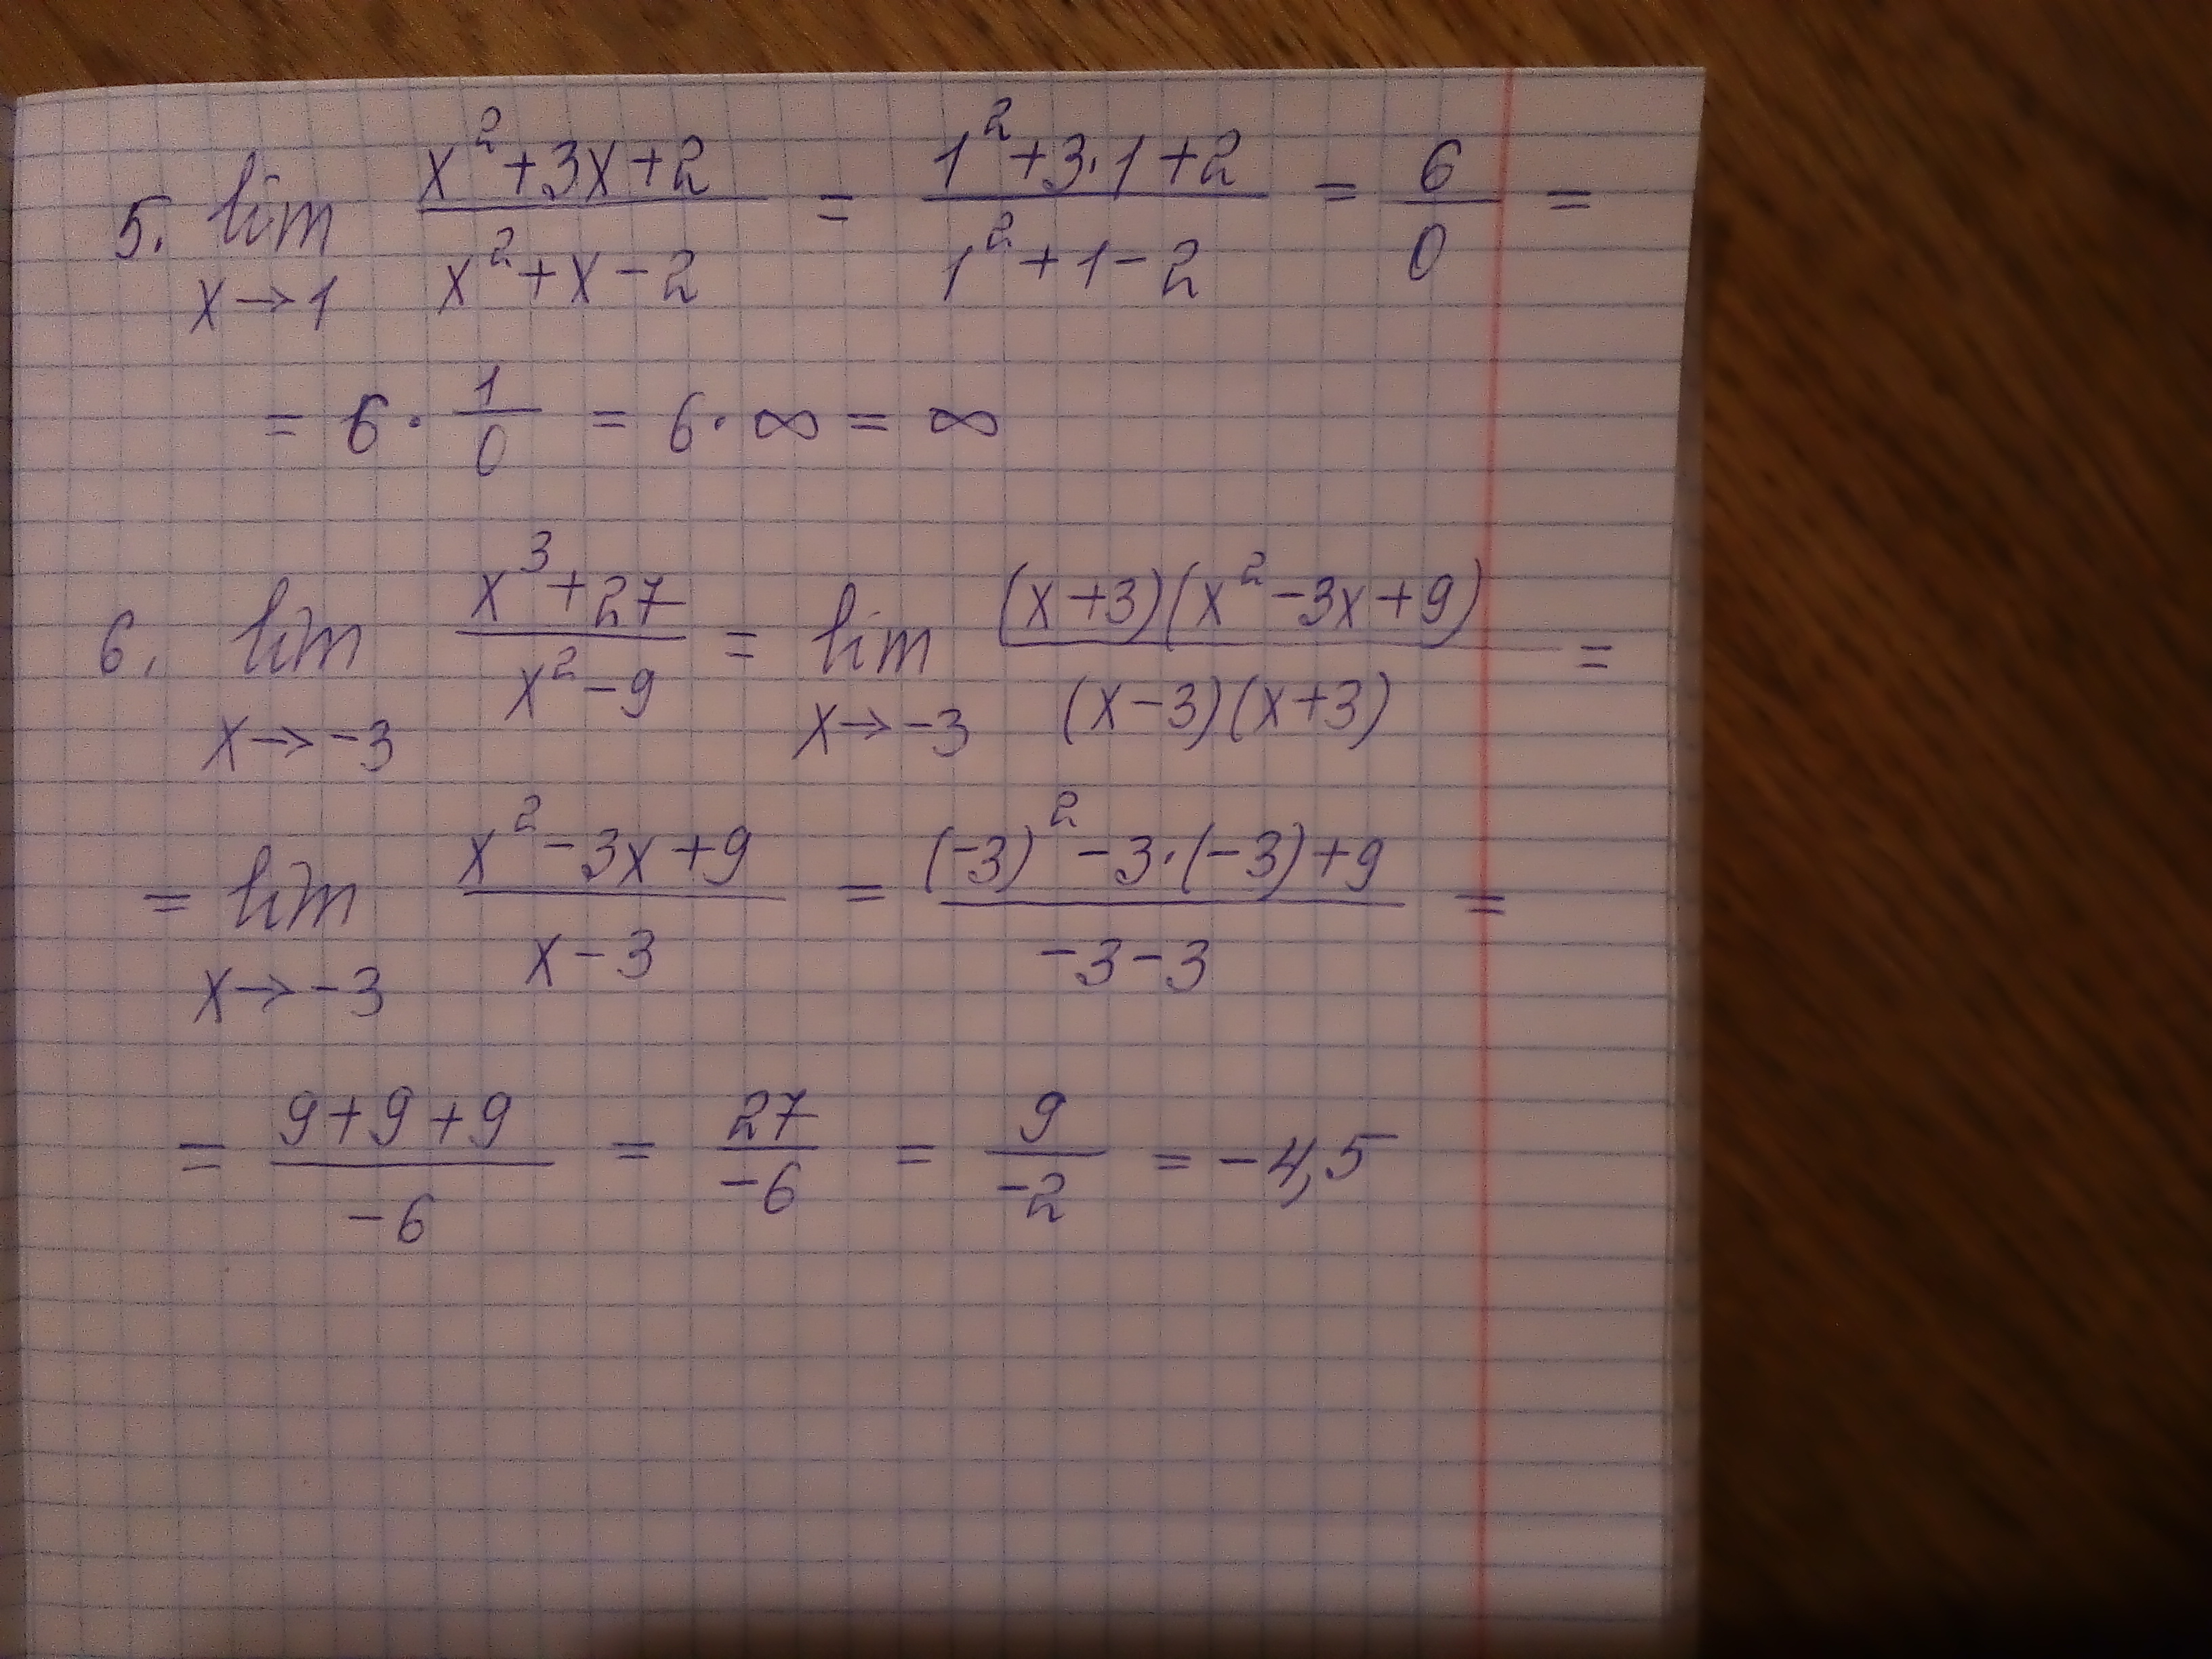 5. lim x→1 (x²+3x+2)/(x²+x-2) = (1²+3·1+2)/(1²+1-2) = 6/0 =
= 6 · 1/0 = 6 · ∞ = ∞
6. lim x→-3 (x³+27)/(x²-9) = lim x→-3 ((x+3)(x²-3x+9))/((x-3)(x+3)) =
= lim x→-3 (x²-3x+9)/(x-3) = ((-3)²-3·(-3)+9)/(-3-3) =
= (9+9+9)/(-6) = 27/(-6) = 9/(-2) = -4,5